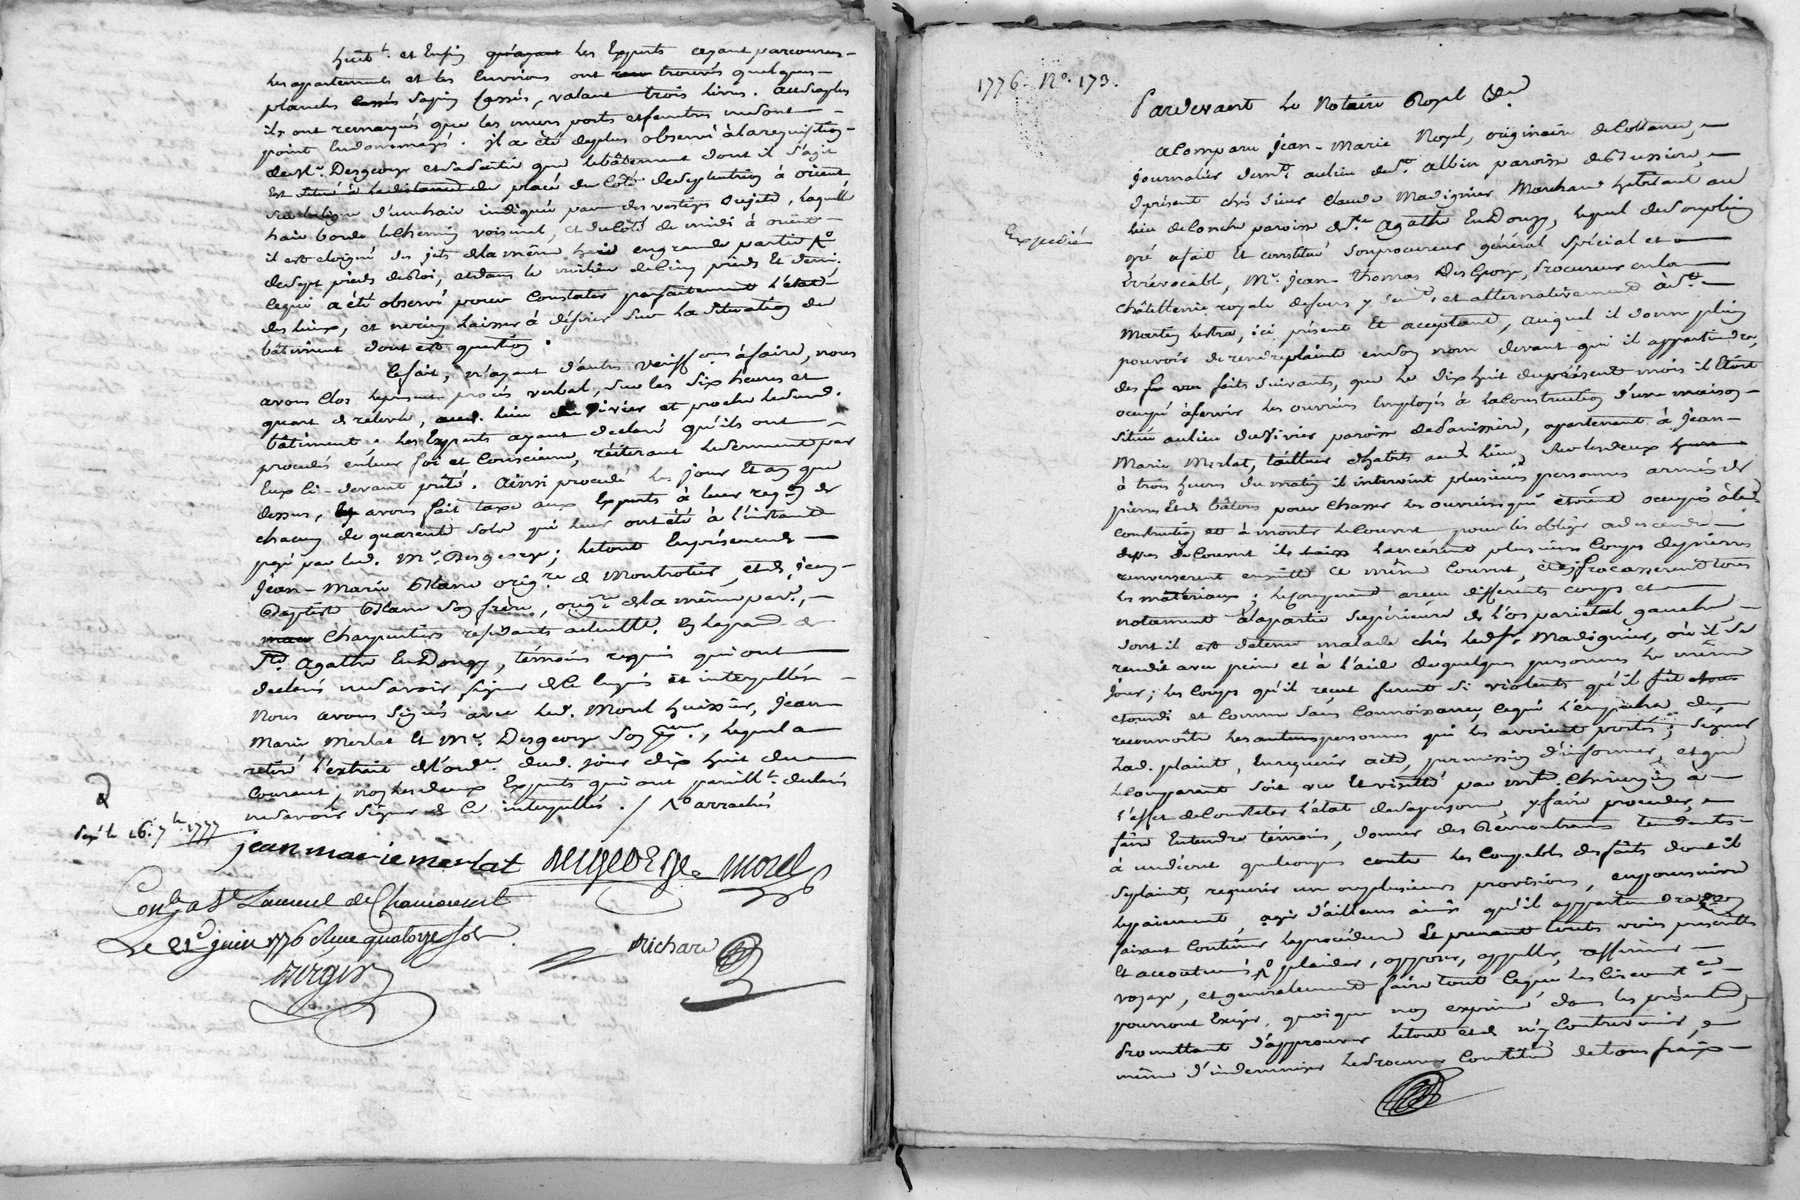 huit.t et Enfin qu'ayant les Experts ayant parcourus
les appartements et les Environs ont trouvés quelques
planches sapin cassés, valant trois livres. au surplus
ils ont remarqués que les murs ports et fenetres ne sont
point Endommagés. il a été de plus observé à la requisition
de Me. Desgeorge que le bâtiment dont il s'agit
placé du côté de septentrion à orient
d'une haie indiqué par des vestiges , laquelle
haie borde le chemin voisinal, et du côté de midi à orient
il est eloigné des jets de la même haie en grande partie
de sept pieds de Roi, et dans le milieu de cinq pieds Et demi.
ce qui a été observé pour Constater parfaitement l'état
des lieux, et ne rien laisser à désirer sur la situation du
bâtiment dont est question.
Ce fait, n'ayant d'autres à faire, nous
avons Clos le présent procès verbal, sur les six heures et
quart de relevée, aud. lieu du vivier et proche led.
bâtiment. les Experts ayant declaré qu'ils ont
procedés en leur foi et Conscience, réiterant le serment par
Eux ci-devant prété. ainsi procedé les jour Et an que
dessus, avons fait taxe aux Experts à leur req.on de
chacun de quarante sols qui leur ont été à l'instant
payé par led. Me. Desgeorge; le tout En présence de
Jean-Marie orig.re de Montrotier, et de jean
Baptiste son frère, orig.re de la même par.se,
Charpentiers residants actuellt. En la par. de
Ste. Agathe EnDonzy, témoins requis qui ont
declarés ne savoir signer de ce enquis et interpellés
Nous avons signés avec led. Morel huissier, Jean
Marie Merlat Et Me. Desgeorge son , lequel a
retiré l'extrait de l'ord. dud. jour dix huit du
Courant; non les deux Experts qui ont pareillt. declarés
ne savoir signer de ce interpellés. / arrachés
1777
jean marie merlat desgeorge morel
Con.le a St. Laurent de Chamousset
Le 21e juin 1776 Reçu quatorze sols
Richard
1776. No. 173.
Pardevant Le Notaire Royal
a Comparu Jean-Marie Noyel, originaire de
journalier demt. au lieu de St. albin paroisse de Bussiere,
à présent chés sieur Claude Madignier Marchand habitant au
lieu de paroisse de Ste. Agathe EnDonzy, lequel de son plein
Expedié
gré a fait Et constitué son procureur général spécial et
irrévocable, Me. Jean-Thomas DesGeorge, Procureur en la
châtellenie royale de feurs y demt. et alternativement à St.
Martin lestra, ici présent Et acceptant, auquel il donne plein
pouvoir de rendre plainte en son nom devant qui il appartiendra,
des faits suivants, que le dix huit du présent mois il Etoit
occupé à servir les ouvriers Employés à la Construction d'une maison
située au lieu du Vivier paroisse de Panissière, apartenant à Jean-
Marie Merlat, tailleur d'habits aud. lieu, sur les deux heures
à trois heures du matin il intervint plusieurs personnes armés de
pierres Et de bâtons pour chasser les ouvriers qui etoient occupés à lad.
construction et à monter le Couvert pour les obliger à descendre
dessus le Couvert ils lancèrent plusieurs Coups de pierres
renverserent ensuitte ce même Couvert, et fracasserent tous
les matériaux; le frapperent avec differents coups et
notament à la partie supérieure de l'os pariétal gauche
dont il est detenu malade chés led. Sr. Madignier, où il se
rendit avec peine et à l'aide de quelques personnes le même
jour; les Coups qu'il reçut furent si violents qu'il fût
etourdi et Comme sans Connoissance, ce qui l'empêcha de
reconnoître les autres personnes qui les avoient portés; signer
lad. plainte, En requérir acte, permission d'informer, et que
le Comparant soit vu Et visitté par un Me. Chirurgien à
l'effet de Constater l'état de sa personne, y faire proceder,
faire Entendre témoins, donner des Rémontrances tendantes
à un décret quelconque contre les Coupables des faits dont il
se plaint, requerir une ou plusieurs provisions, en poursuivre
le paiement agir d'ailleurs ainsi qu'il appartiendra
faisant Continuer la procédure Et prenant toutes voies prescrittes
Et accoutumés plaider, opposer, appeller, affirmer
voyage, et generalement faire tout ce que les Circonst.ces
pourront Exiger, quoique non exprimé dans les présentes,
Promettant d'approuver le tout et de n'y Contrevenir,
même d'indemniser led. Procureur Constitué de tous fraix